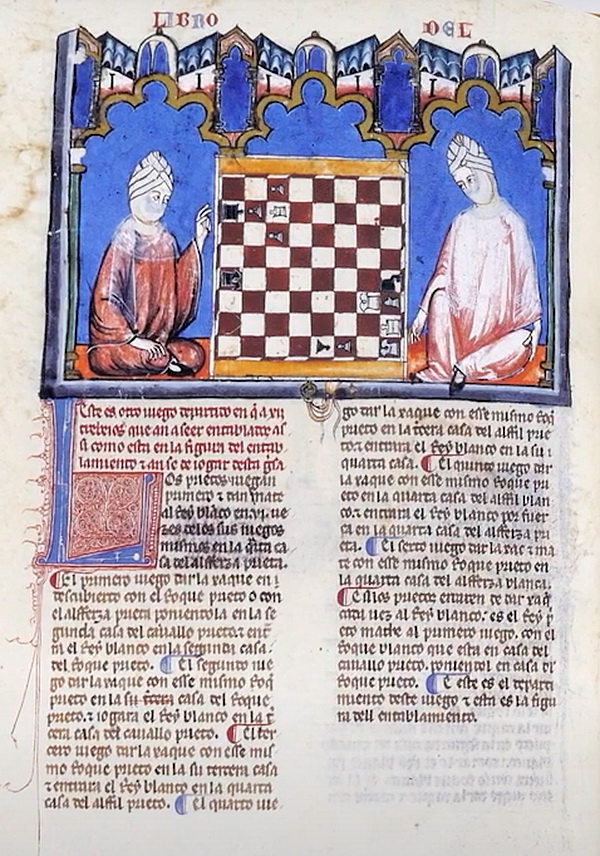 LIBRO DEL
Este es otro iuego departido en q̃ a xvij
trebeios que an a seer entablados as
si como esta en la figura del entab
lamiento ⁊ an se de iogar desta gisa
Los prietos iuegan
primero ⁊ dan mate
al Rey blanco en
zes delos sus iuegos
mismos en la casa
del alfferza prieta.
¶ El primero iuego dar la xaque en
descubierto con el Roque prieto o con
el alfferza prieta poniendola en la se
gunda casa del cauallo prieto. entra
ra el Rey blanco en la segunda casa
del Roque prieto. ¶ El segundo iue
go dar la xaque con esse mismo Roq̃
prieto en la su casa del Roque
prieto. ⁊ iogara el Rey blanco en la t̃
cera casa del cauallo prieto. ¶ El ter
cero iuego dar la xaque con esse mis
mo Roque prieto en la su tercera casa
⁊ entrara el Rey blanco en la quarta
casa del alffil prieto. ¶ El quarto iue
go dar la xaque con esse mismo Roq̃
prieto en la t̃cera casa del alffil prie
to. ⁊ entrara el Rey blanco en la su
quarta casa. ¶ El quinto iuego dar
la xaque con esse mismo Roque pri
eto en la quarta casa del alffil blan
co. ⁊ entrara el Rey blanco por fuer
ça en la quarta casa del alfferza pri
eta. ¶ El sexto iuego dar la xac ⁊ ma
te con esse mismo Roque prieto en
la quarta casa del alfferza blanca.
¶ E si los prietos erraren de dar xaq̃
cada uez al Rey blanco. es el Rey p̃
eto mate al primero iuego. con el
Roque blanco que esta en casa del
cauallo prieto. poniendol en casa del
Roque prieto. ¶ E este es el departi
miento deste iuego ⁊ esta es la figu
ra dell entablamiento.